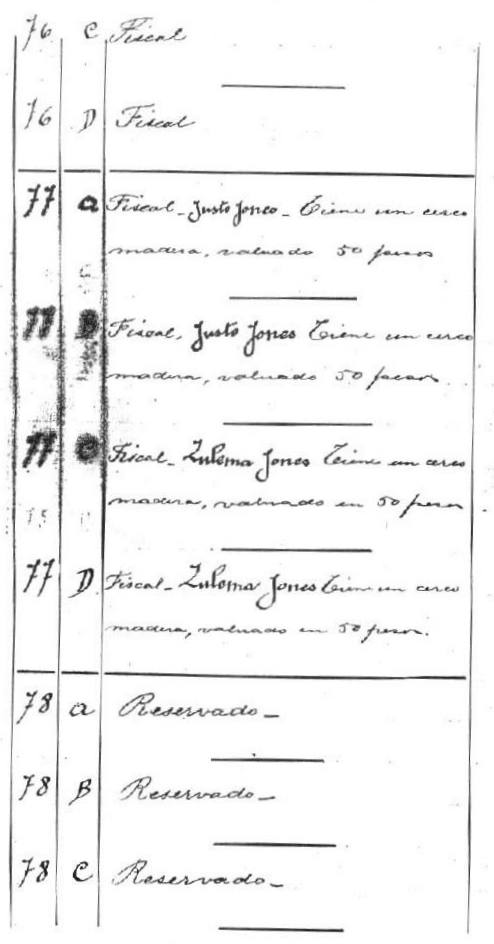 76 C Fiscal
76 D Fiscal
77 a Fiscal_ Justo Jones_ Tiene un cerco
madera, valuado 50 pesos
77 B Fiscal. Justo Jones Tiene un cerco
madera, valuado 50 pesos.
77 C Fiscal_ Zulema Jones Tiene un cerco
madera, valuado en 50 pesos
77 D. Fiscal_ Zulema Jones Tiene un cerco
madera, valuado en 50 pesos.
78 a Reservado_
78 B Reservado_
78 C Reservado_